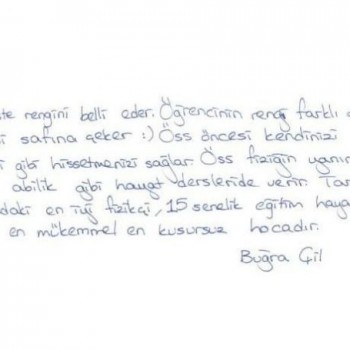 te rengini belli eder. Öğrencinin rengi farklı
safına çeker :) Öss öncesi kendinizi
gibi hissetmenizi sağlar. Öss fiziğin yanın
abilik gibi hayat dersleride verir. Tar
daki en iyi fizikçi, 15 senelik eğitim haya
en mükemmel en kusursuz hocadır.
Buğra Çil